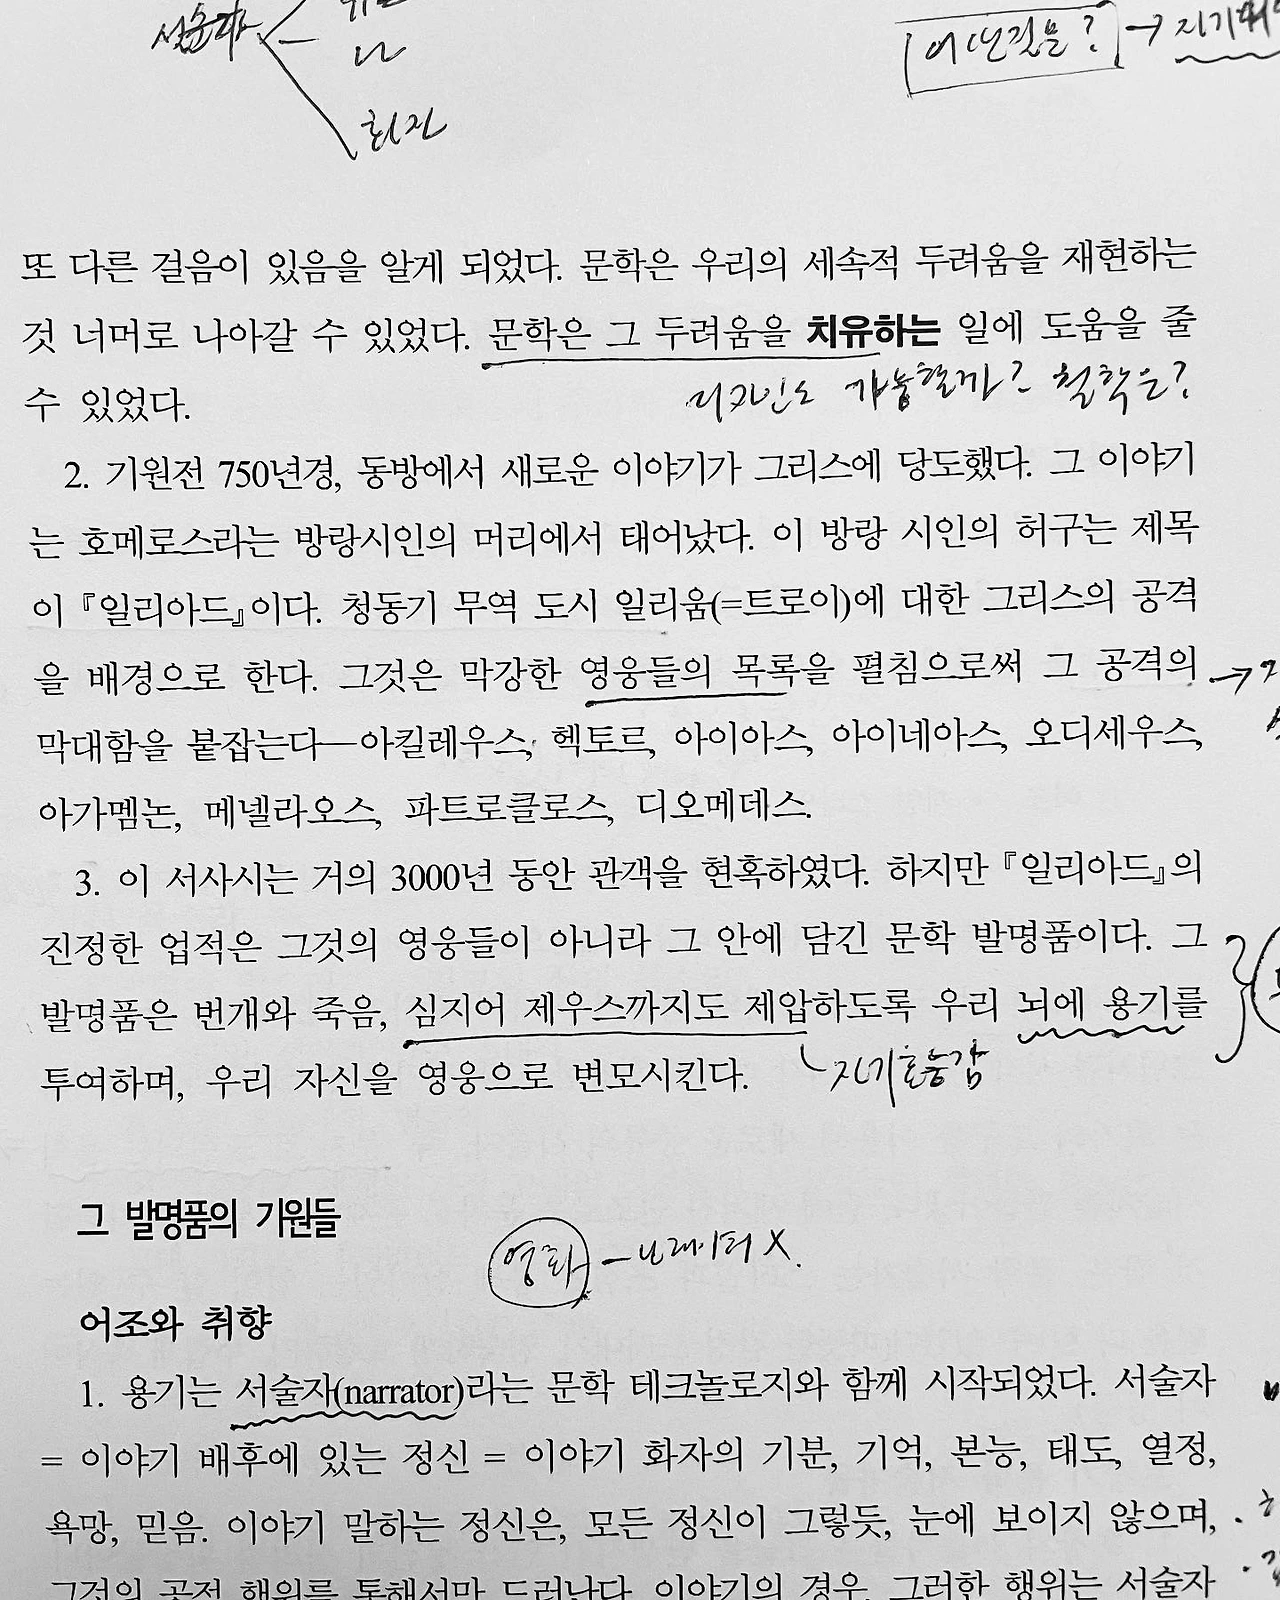 서술자
나
화자
어떤것을? →
또 다른 걸음이 있음을 알게 되었다. 문학은 우리의 세속적 두려움을 재현하는
것 너머로 나아갈 수 있었다. 문학은 그 두려움을 치유하는 일에 도움을 줄
수 있었다.
디자인도 가능할까? 철학은?
2. 기원전 750년경, 동방에서 새로운 이야기가 그리스에 당도했다. 그 이야기
는 호메로스라는 방랑시인의 머리에서 태어났다. 이 방랑 시인의 허구는 제목
이 『일리아드』이다. 청동기 무역 도시 일리움(=트로이)에 대한 그리스의 공격
을 배경으로 한다. 그것은 막강한 영웅들의 목록을 펼침으로써 그 공격의 →
막대함을 붙잡는다—아킬레우스, 헥토르, 아이아스, 아이네아스, 오디세우스,
아가멤논, 메넬라오스, 파트로클로스, 디오메데스.
3. 이 서사시는 거의 3000년 동안 관객을 현혹하였다. 하지만 『일리아드』의
진정한 업적은 그것의 영웅들이 아니라 그 안에 담긴 문학 발명품이다. 그
발명품은 번개와 죽음, 심지어 제우스까지도 제압하도록 우리 뇌에 용기를
투여하며, 우리 자신을 영웅으로 변모시킨다.
자기효능감
그 발명품의 기원들
영화 – 나레이터 X.
어조와 취향
1. 용기는 서술자(narrator)라는 문학 테크놀로지와 함께 시작되었다. 서술자
= 이야기 배후에 있는 정신 = 이야기 화자의 기분, 기억, 본능, 태도, 열정,
욕망, 믿음. 이야기 말하는 정신은, 모든 정신이 그렇듯, 눈에 보이지 않으며,
그것의 공적 행위를 통해서만 드러난다. 이야기의 경우, 그러한 행위는 서술자